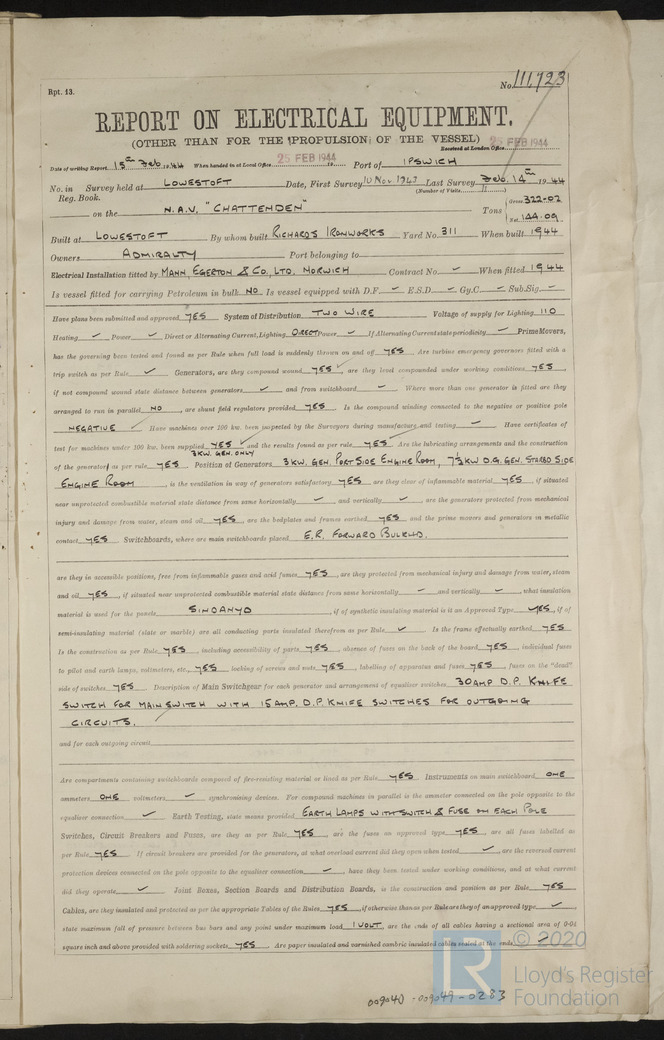 Rpt. 13.
No. 111,723
REPORT ON ELECTRICAL EQUIPMENT.
(OTHER THAN FOR THE PROPULSION OF THE VESSEL)
25 FEB 1944
Received at London Office
Date of writing Report 15th Feb. 1944 When handed in at Local Office 25 FEB 1944 19 Port of IPSWICH
No. in Survey held at LOWESTOFT Date, First Survey 10 Nov 1943 Last Survey Feb. 14th 1944
Reg. Book. (Number of Visits )
on the N.A.V. "CHATTENDEN" Tons Gross 322.02 Net 144.09
Built at LOWESTOFT By whom built RICHARDS IRONWORKS Yard No. 311 When built 1944
Owners ADMIRALTY Port belonging to
Electrical Installation fitted by MANN, EGERTON & CO., LTD. NORWICH Contract No. ✓ When fitted 1944
Is vessel fitted for carrying Petroleum in bulk NO Is vessel equipped with D.F. ✓ E.S.D. ✓ Gy.C. ✓ Sub.Sig. ✓
Have plans been submitted and approved YES System of Distribution TWO WIRE Voltage of supply for Lighting 110
Heating ✓ Power ✓ Direct or Alternating Current, Lighting DIRECT Power ✓ If Alternating Current state periodicity ✓ Prime Movers,
has the governing been tested and found as per Rule when full load is suddenly thrown on and off YES Are turbine emergency governors fitted with a
trip switch as per Rule ✓ Generators, are they compound wound YES, are they level compounded under working conditions YES,
if not compound wound state distance between generators ✓ and from switchboard ✓ Where more than one generator is fitted are they
arranged to run in parallel NO, are shunt field regulators provided YES Is the compound winding connected to the negative or positive pole
NEGATIVE Have machines over 100 kw. been inspected by the Surveyors during manufacture and testing ✓ Have certificates of
test for machines under 100 kw. been supplied YES and the results found as per rule YES Are the lubricating arrangements and the construction
3KW. GEN. ONLY
of the generators as per rule YES Position of Generators 3KW. GEN. PORT SIDE ENGINE ROOM, 7½KW D.G. GEN. STARBD SIDE
ENGINE ROOM, is the ventilation in way of generators satisfactory YES are they clear of inflammable material YES, if situated
near unprotected combustible material state distance from same horizontally ✓ and vertically ✓, are the generators protected from mechanical
injury and damage from water, steam and oil YES, are the bedplates and frames earthed YES and the prime movers and generators in metallic
contact YES Switchboards, where are main switchboards placed E.R. FORWARD BULKHD.
are they in accessible positions, free from inflammable gases and acid fumes YES, are they protected from mechanical injury and damage from water, steam
and oil YES, if situated near unprotected combustible material state distance from same horizontally ✓ and vertically ✓, what insulation
material is used for the panels SINDANYO, if of synthetic insulating material is it an Approved Type YES, if of
semi-insulating material (slate or marble) are all conducting parts insulated therefrom as per Rule ✓ Is the frame effectually earthed YES
Is the construction as per Rule YES, including accessibility of parts YES, absence of fuses on the back of the board YES, individual fuses
to pilot and earth lamps, voltmeters, etc., YES locking of screws and nuts YES, labelling of apparatus and fuses YES, fuses on the "dead"
side of switches YES Description of Main Switchgear for each generator and arrangement of equaliser switches 30 AMP D.P. KNIFE
SWITCH FOR MAIN SWITCH WITH 15 AMP. D.P. KNIFE SWITCHES FOR OUTGOING
CIRCUITS.
and for each outgoing circuit
Are compartments containing switchboards composed of fire-resisting material or lined as per Rule YES Instruments on main switchboard ONE
ammeters ONE voltmeters ✓ synchronising devices. For compound machines in parallel is the ammeter connected on the pole opposite to the
equaliser connection ✓ Earth Testing, state means provided EARTH LAMPS WITH SWITCH & FUSE ON EACH POLE
Switches, Circuit Breakers and Fuses, are they as per Rule YES, are the fuses an approved type YES are all fuses labelled as
per Rule YES If circuit breakers are provided for the generators, at what overload current did they open when tested ✓, are the reversed current
protection devices connected on the pole opposite to the equaliser connection ✓, have they been tested under working conditions, and at what current
did they operate ✓ Joint Boxes, Section Boards and Distribution Boards, is the construction and position as per Rule YES
Cables, are they insulated and protected as per the appropriate Tables of the Rules YES, if otherwise than as per Rule are they of an approved type ✓,
state maximum fall of pressure between bus bars and any point under maximum load 1 VOLT are the ends of all cables having a sectional area of 0.04
square inch and above provided with soldering sockets YES Are paper insulated and varnished cambric insulated cables sealed at the ends ✓
LR
© 2020
Lloyd's Register
Foundation
009040-009049-0283